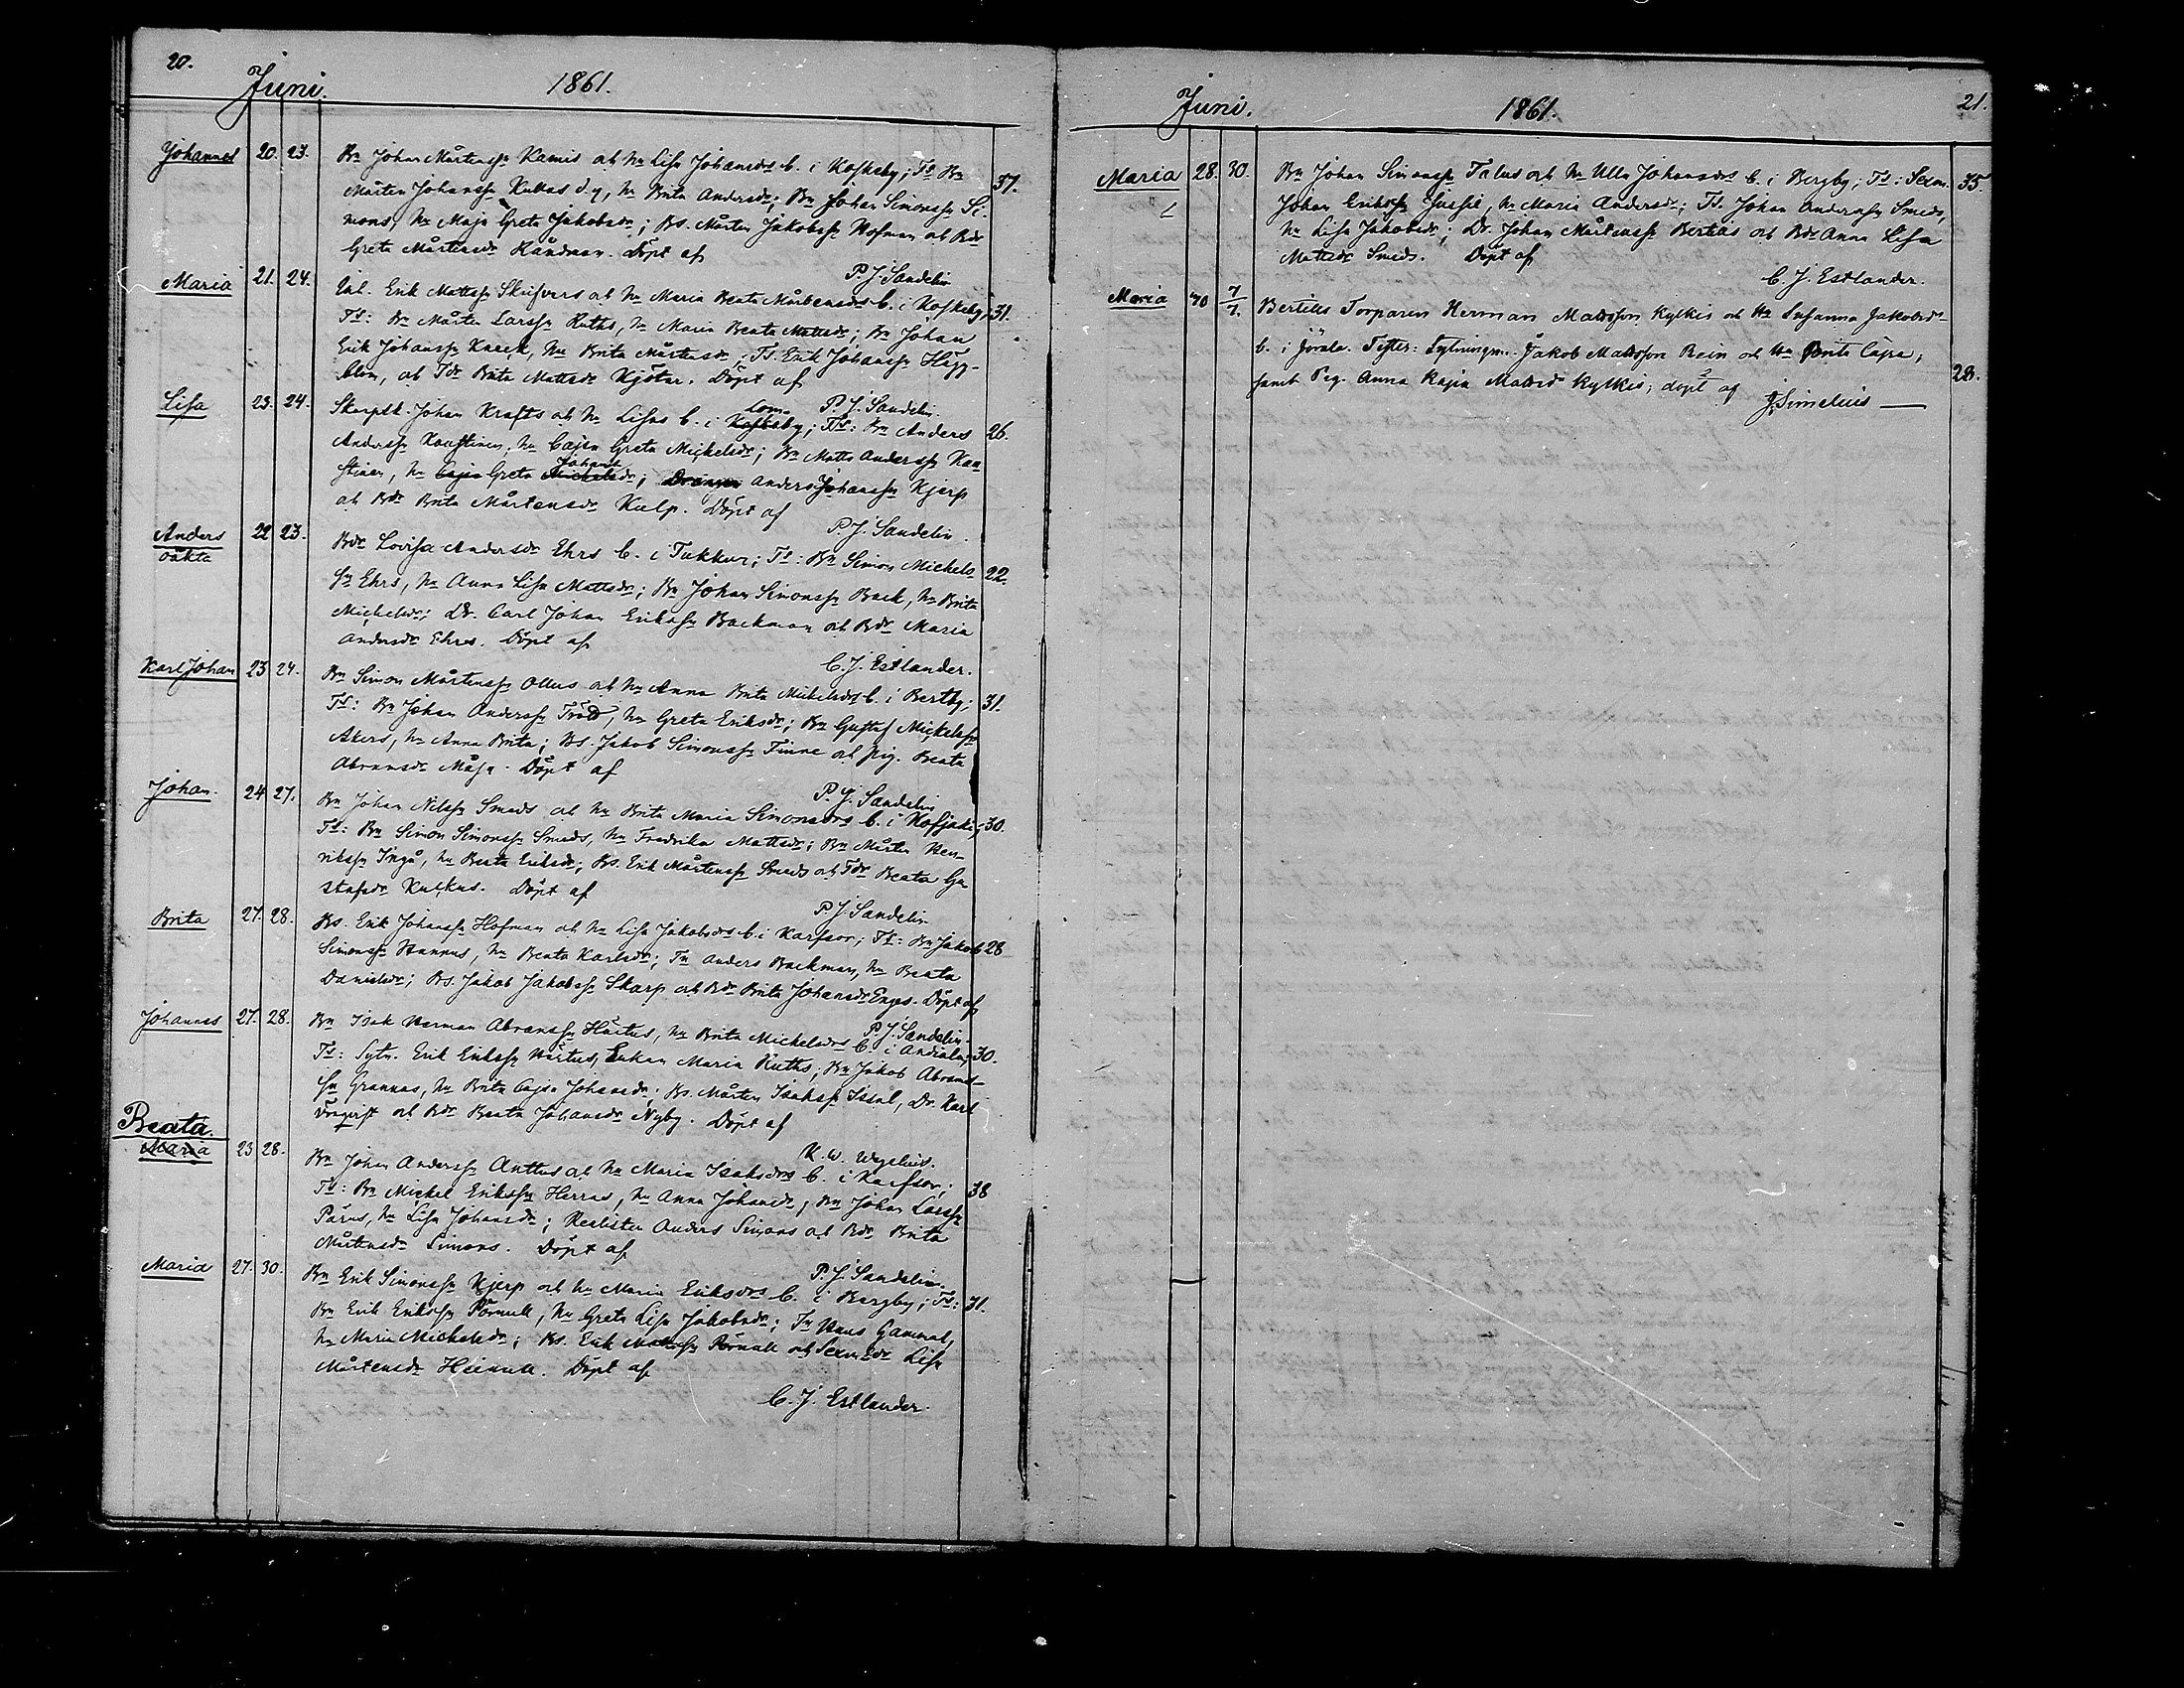 20.
Juni. 1861.
Johannes 20. 23. Bn Johan Mårtenss. Kamis och h. Lisa Johansdrs b. i Kosskeby; Ts Bn 37.
Mårten Johanss. Kullas d.y, h. Brita Andersdr; Bn Johan Simonss. Si-
mons, h. Maja Greta Jakobsdr; Bs. Mårten Jakobss. Hofman och Bdr
Greta Mårtensdr Ründman. Döpt af
P. J. Sandelin
Maria 21. 24. Inh. Erik Mattss. Skrifvars och h. Maria Beata Mårtensdrs b. i Kosskeby; 31.
Ts: Bn Mårten Larss. Ruths, h. Maria Beata Mattsdr; Bn Johan
Erik Johanss. Kneck, h. Brita Mårtensdr; Ts. Erik Johanss. Hägg-
blom, och Tdr Brita Mattsdr Kjötar. Döpt af
P. J. Sandelin.
Lisa 23. 24. Skarpsk. Johan Krafts och h. Lisas b. i Kosskeby; Ts: Bn Anders 26.
Anderss. Kaustinen, h. Cajsa Greta Michelsdr; Bn Matts Anderss. Kau-
stinen, h. Cajsa Greta Michelsdr; Drängen Anders Johanss. Kjerp
och Bdr Brita Mårtensdr Kulp. Döpt af
P. J. Sandelin.
Anders 22 23. Bdr Lovisa Andersdr Ehrs b. i Tukkur; Ts: Bn Simon Michels- 22.
oäkta
sn Ehrs, h. Anna Lisa Mattsdr; Bn Johan Simonss. Back, h. Brita
Michelsdr; Dr. Carl Johan Erikss. Backman och Bdr Maria
Andersdr Ehrs. Döpt af
C. J. Estlander.
Karl Johan 23 24. Bn Simon Mårtenss. Ollus och h. Anna Brita Mickelsdrs b. i Bertby; 31.
Ts: Bn Johan Anderss. Tröd, h. Greta Eriksdr; Bn Gustaf Mickelss.
Akers, h. Anna Brita; Bs. Jakob Simonss. Finne och pig. Beata
Abramsdr Måsa. Döpt af
P. J. Sandelin
Johan. 24 27. Bn Johan Nilss. Smeds och h. Brita Maria Simonsdrs b. i Kofjoki; 30.
Ts: Bn Simon Simonss. Smeds, h. Fredrika Mattsdr; Bn Mårten Hen-
rikss. Ingå, h. Beata Eriksdr; Bs. Erik Mårtenss. Smeds och Tdr Beata Gu-
stafsdr Kulkus. Döpt af
P. J. Sandelin
Brita 27. 28. Bs. Erik Johanss. Hofman och h. Lisa Jakobsdrs b. i Karfsor; Ts: Bn Jakob 28
Simonss. Hannus, h. Beata Karlsdr; Tn Anders Backman, h. Beata
Danielsdr; Bs. Jakob Jakobss. Skarp och Bdr Brita Johansdr Enges. Döpt af
P. J. Sandelin.
Johannes 27. 28. Bn Isak Herman Abramss. Härtus, h. Brita Michelsdrs b. i Andiala; 30.
Ts: Sytn. Erik Erikss. Härtus, Enkan Maria Ruths; Bn Jakob Abrams-
sn Grannas, h. Brita Cajsa Johansdr; Bs. Mårten Isakss. Issal, Dr. Karl
och Bdr Beata Johansdr Nyby. Döpt af
K. W. Wegelius.
Beata.
Maria 23 28. Bn Johan Anderss. Anttus och h. Maria Isaksdrs b. i Karfsor; 38
Ts: Bn Mickel Erikss. Herras, h. Anna Johansdr; Bn Johan Larss.
Pärus, h. Lisa Johansdr; Reslisten Anders Simons och Bdr Brita
Mårtensdr Simons. Döpt af
P. J. Sandelin.
Maria 27. 30. Bn Erik Simonss. Kjerp och h. Maria Eriksdrs b. i Bergby; Ts: 31.
Bn Erik Erikss. Pörnull, h. Greta Lisa Jakobsdr; Tn Hans Gammal,
h. Maria Michelsdr; Bs. Erik Mattss. Pörnull och Sexm.dr Lisa
Mårtensdr Heinull. Döpt af
C. J. Estlander.
Juni. 1861. 21.
Maria 28. 30. Bn Johan Simonss. Talus och h. Ulla Johansdrs b. i Bergby; Ts: Sexm. 35
Johan Erikss. Jussil, h. Maria Andersdr; Ts. Johan Anderss. Smeds,
h. Lisa Jakobsdr; Dr. Johan Mårtenss. Bertils och Bdr Anna Lisa
Mattsdr Smeds. Döpt af
C. J. Estlander.
Maria 30 7/7. Bertills Torparen Herman Mattsson Kylkis och H. Susanna Jakobsdr
b. i Jörala. Testes: Sytningm. Jakob Mattsson Rein och H. Brita Cajsa, 28.
samt Pig. Anna Kajsa Mattsdr Kylkis; döpt af J. Simelius